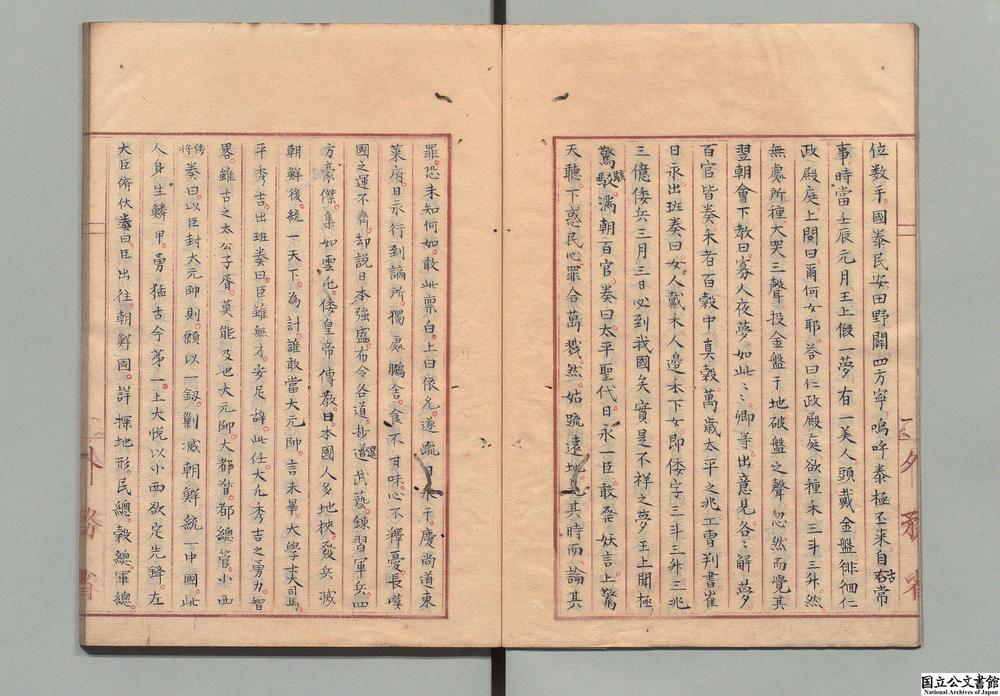 位数乎國泰民安田野闢四方寧嗚呼泰極丕来自古常
事時當壬辰元月王上假一夢有一美人頭戴金盤徘徊仁
政殿庭上問曰爾何女耶答曰仁政殿庭欲種禾三斗三升然
無處所種大哭三聲投金盤于地破盤之聲忽然而覺其
翌朝會下教曰寡人夜夢如此々卿等出意見各々解夢
百官皆奏禾者百穀中真穀萬歳太平之兆工曹判書崔
日永出班奏曰女人戴木人邊禾下女即倭字三斗三升三兆
三億倭兵三月三日必到我國矣實是不祥之夢王上聞極
驚駭滿朝百官奏曰太平聖代日永一臣敢發妖言上驚
天聽下惑民心罪合萬戮然姑疏遠地見其時而論其
罪恐未知何如敢此禀白上曰依允遂疏日永于慶尚道東
萊府日永行到謫所獨處鵬舍食不甘味心不釋憂長嘆
國之運不齊却説日本強盛布令各道抄選武藝錬習軍兵四
方豪傑集如雲屯倭皇帝傳教曰本國人多地狹發兵滅
朝鮮後統一天下為計誰敢當大元帥言未畢大學士大司馬
平秀吉出班奏曰臣雖無才安足辞此任大凡秀吉之勇力智
畧雖古之太公子胥莫能及也大元帥大都督都總管小西
倚将奏曰以臣封大元帥則願以一釼剿滅朝鮮統一中國此
人身生鱗甲勇猛古今第一上大悦以小西欲定先鋒左
大臣俯伏奏曰臣出往朝鮮國詳探地形民總穀總軍總
外務省
外務省
国立公文書館
National Archives of Japan